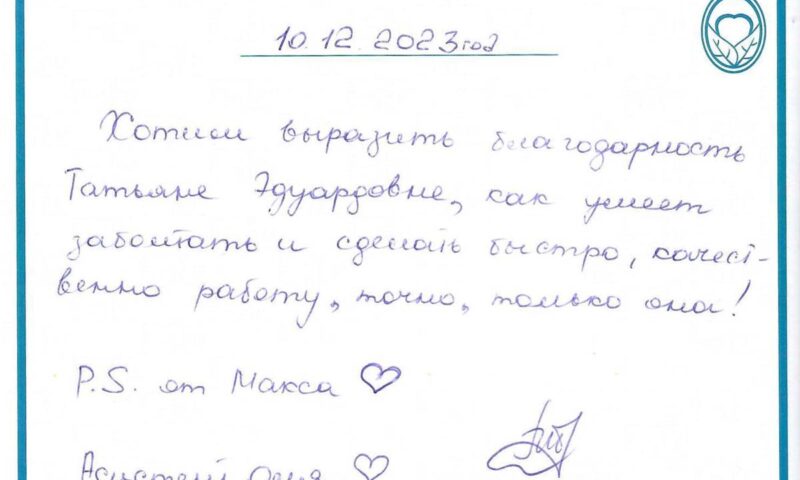 10.12.2023год
Хотим выразить благодарность
Татьяне Эдуардовне, как умеет
заболтать и сделать быстро, качест-
венно работу, точно, только она!
P.S. от Макса ♡
♡